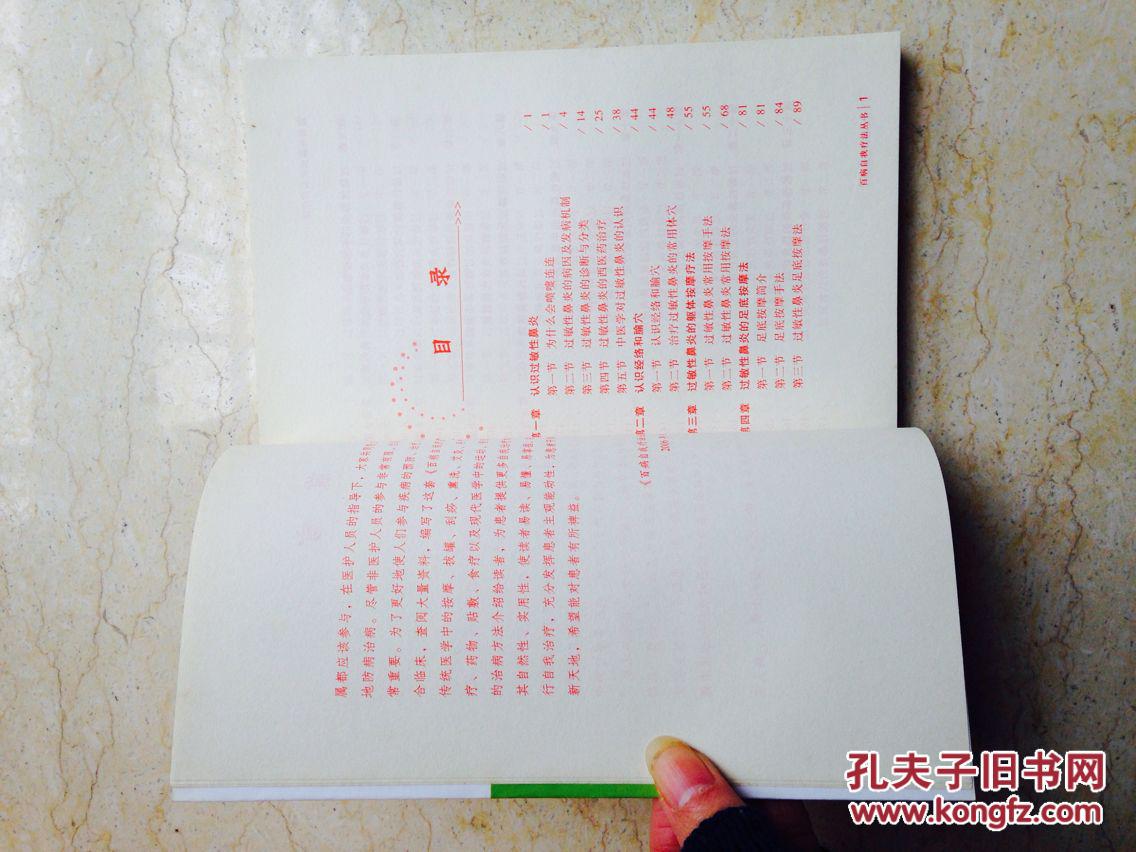 属都应该参与，在医护人员的指导下，大家共同
地防病治病。尽管非医护人员的参与非常有限，
常重要。为了更好地使人们参与疾病的预防、治疗
合临床，查阅大量资料，编写了这套《百病自我疗
传统医学中的按摩、拔罐、刮痧、熏洗、艾灸、
疗、药物、贴敷、食疗以及现代医学中的
的治病方法介绍给读者，为患者提供更多自我治疗
其自然性、实用性，使读者易读、易懂、易掌握，
行自我治疗，充分发挥患者主观能动性，为患者
新天地，希望能对患者有所裨益。
《百病自我疗法
2006年
目 录
>>>
第一章 认识过敏性鼻炎 / 1
第一节 为什么会喷嚏连连 / 1
第二节 过敏性鼻炎的病因及发病机制 / 4
第三节 过敏性鼻炎的诊断与分类 / 14
第四节 过敏性鼻炎的西医药治疗 / 25
第五节 中医学对过敏性鼻炎的认识 / 38
第二章 认识经络和腧穴 / 44
第一节 认识经络和腧穴 / 44
第二节 治疗过敏性鼻炎的常用体穴 / 48
第三章 过敏性鼻炎的躯体按摩疗法 / 55
第一节 过敏性鼻炎常用按摩手法 / 55
第二节 过敏性鼻炎常用按摩法 / 68
第四章 过敏性鼻炎的足底按摩法 / 81
第一节 足底按摩简介 / 81
第二节 足底按摩手法 / 84
第三节 过敏性鼻炎足底按摩法 / 89
百病自我疗法丛书 | 1
孔夫子旧书网
www.kongfz.com